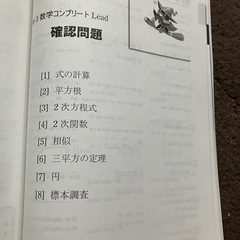 数学コンプリート Lead
確認問題
[1] 式の計算
[2] 平方根
[3] 2次方程式
[4] 2次関数
[5] 相似
[6] 三平方の定理
[7] 円
[8] 標本調査